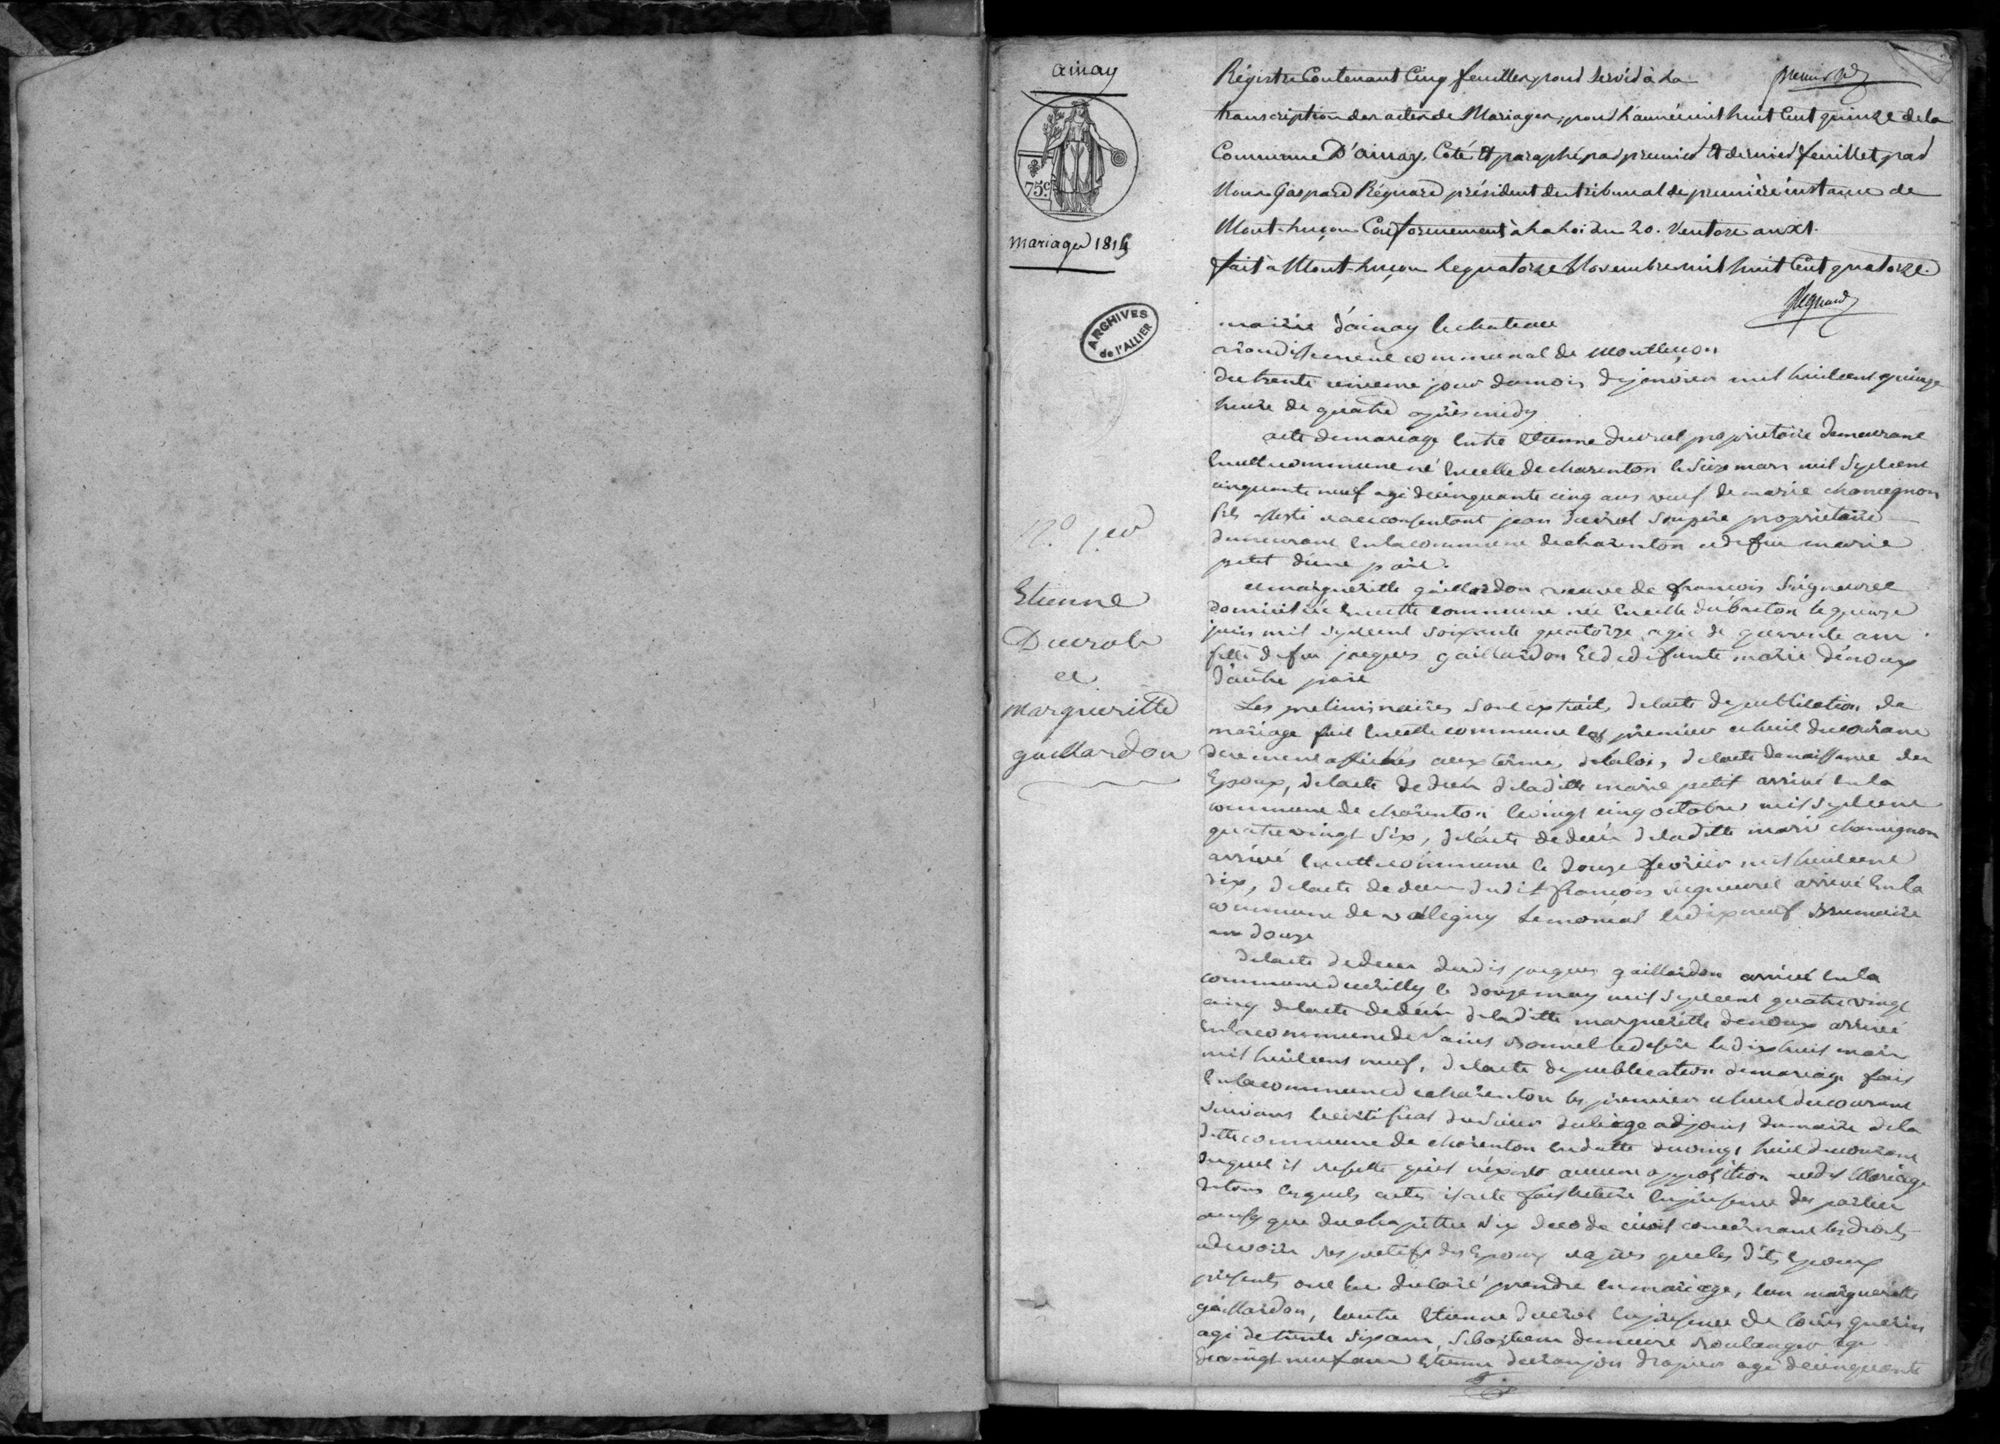 ainay
75c
mariages 1815
ARCHIVES
de l'ALLIER
Régistre Contenant Cinq feuillets pour servir à la
premier
transcription des actes de Mariages, pour l'année mil huit Cent quinze de la
Commune D'ainay, Coté et paraphé par premier et dernier feuillet par
Nous Gaspard Régnard président du tribunal de première instance de
Mont-luçon Conformément à la Loi du 20. Ventose an XI.
fait à Mont-luçon le quatorze Novembre mil huit Cent quatorze.
Regnard
mairie d'ainay le chateau
arondissement communal de montluçon
du trente unieme jour du mois de janvier mil huit cent quinze
heure de quatre après midy
acte de mariage entre Etienne ducrot proprietaire demeurant
en cette commune né en celle de charenton le seize mars mil sept cent
cinquante neuf agé de cinquante cinq ans veuf de marie chamignon
fils assisté et au consentant jean ducrot son père proprietaire
demeurant en la commune de charenton et de feu marie
petit d'une part.
et margueritte gaillardon veuve de françois seigneuret
domiciliée en cette commune née en celle du breton le quinze
juin mil sept cent soixante quatorze agée de quarante ans
fille de feu jacques gaillardon et de defunte marie denoux
d'autre part
N.o 1.er
Etienne
Ducrot
et
margueritte
gaillardon
Les preliminaires sont extraits de l'acte de publication de
mariage fait en cette commune les premier et huit du courant
duement affichés aux termes de la loi, de l'acte de naissance des
Epoux, de l'acte de décès de la ditte marie petit arrivé en la
commune de charenton le vingt cinq octobre mil sept cent
quatre vingt six, de l'acte de décès de la ditte marie chamignon
arrivé en cette commune le douze fevrier mil huit cent
dix, de l'acte de deces dudit françois seigneuret arrivé en la
commune de valigny le monial le dix neuf brumaire
an douze
de l'acte de deces dudit jacques gaillardon arrivé en la
commune d'urcilly le douze may mil sept cent quatre vingt
cinq de l'acte de décès de la ditte margueritte denoux arrivé
en la commune de saint bonnet le desert le dix huit mars
mil huit cent neuf, de l'acte de publication de mariage fait
en la commune de charenton les premier et huit du courant
suivant le certificat du sieur adjoint du maire de la
ditte commune de charenton en datte du vingt huit du courant
duquel il resulte qu'il n'existe aucune opposition audit Mariage
de tous lesquels actes il a été fait lecture en presence des parties
ainsy que du chapitre six du code civil concernant les droits
et devoirs respectifs des Epoux et après que les dits Epoux
presents ont eu declaré prendre en mariage, l'un margueritte
gaillardon, l'autre Etienne ducrot en presence de louis guerin
agé de trente six ans, sebastien boulanger agé
de vingt neuf ans Etienne drapier agé de cinquante